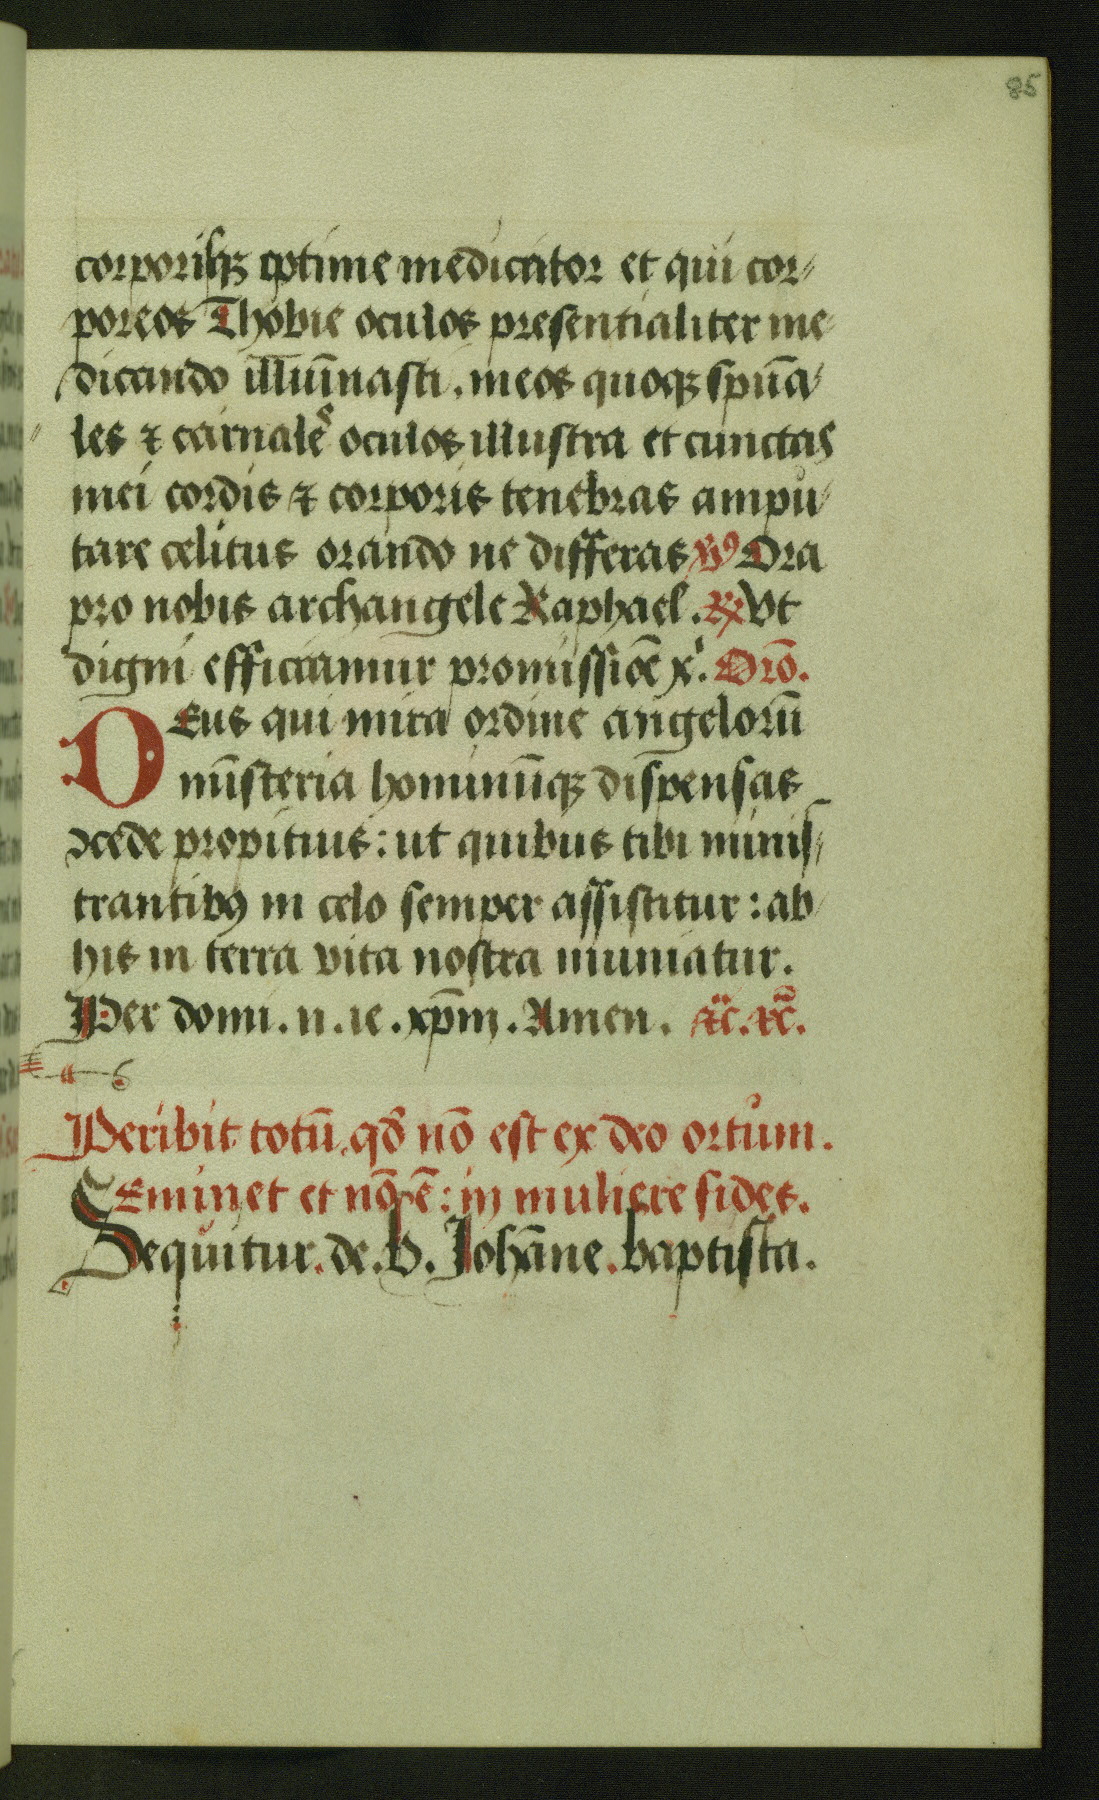 85
corporisqꝫ optime medicator et qui cor⸗
poreos Thobie oculos presentialiter me⸗
dicando illuīnasti. meos quoqꝫ spūa⸗
les ⁊ carnales oculos illustra et cunctas
mei cordis ⁊ corporis tenebras ampu⸗
tare celitus orando ne differas ℣ Ora
pro nobis archangele Raphael. ℟ Vt
digni efficiamur promissiōe x͛. Orō.
Deus qui miro ordine angelorū
mīsteria hominūqꝫ dispensas
ↄcede propitius: ut quibus tibi minis⸗
trantibꝰ in celo semper assistitur: ab
his in terra vita nostra muniatur.
Per domi. n. ie. xp̄m. Amen. ⁊c̄. ⁊c̄.
Peribit totū qd̄ nō est ex deo ortum.
Eminet et nō ē: in muliere fides.
Sequitur. de. b. Johāne. baptista.